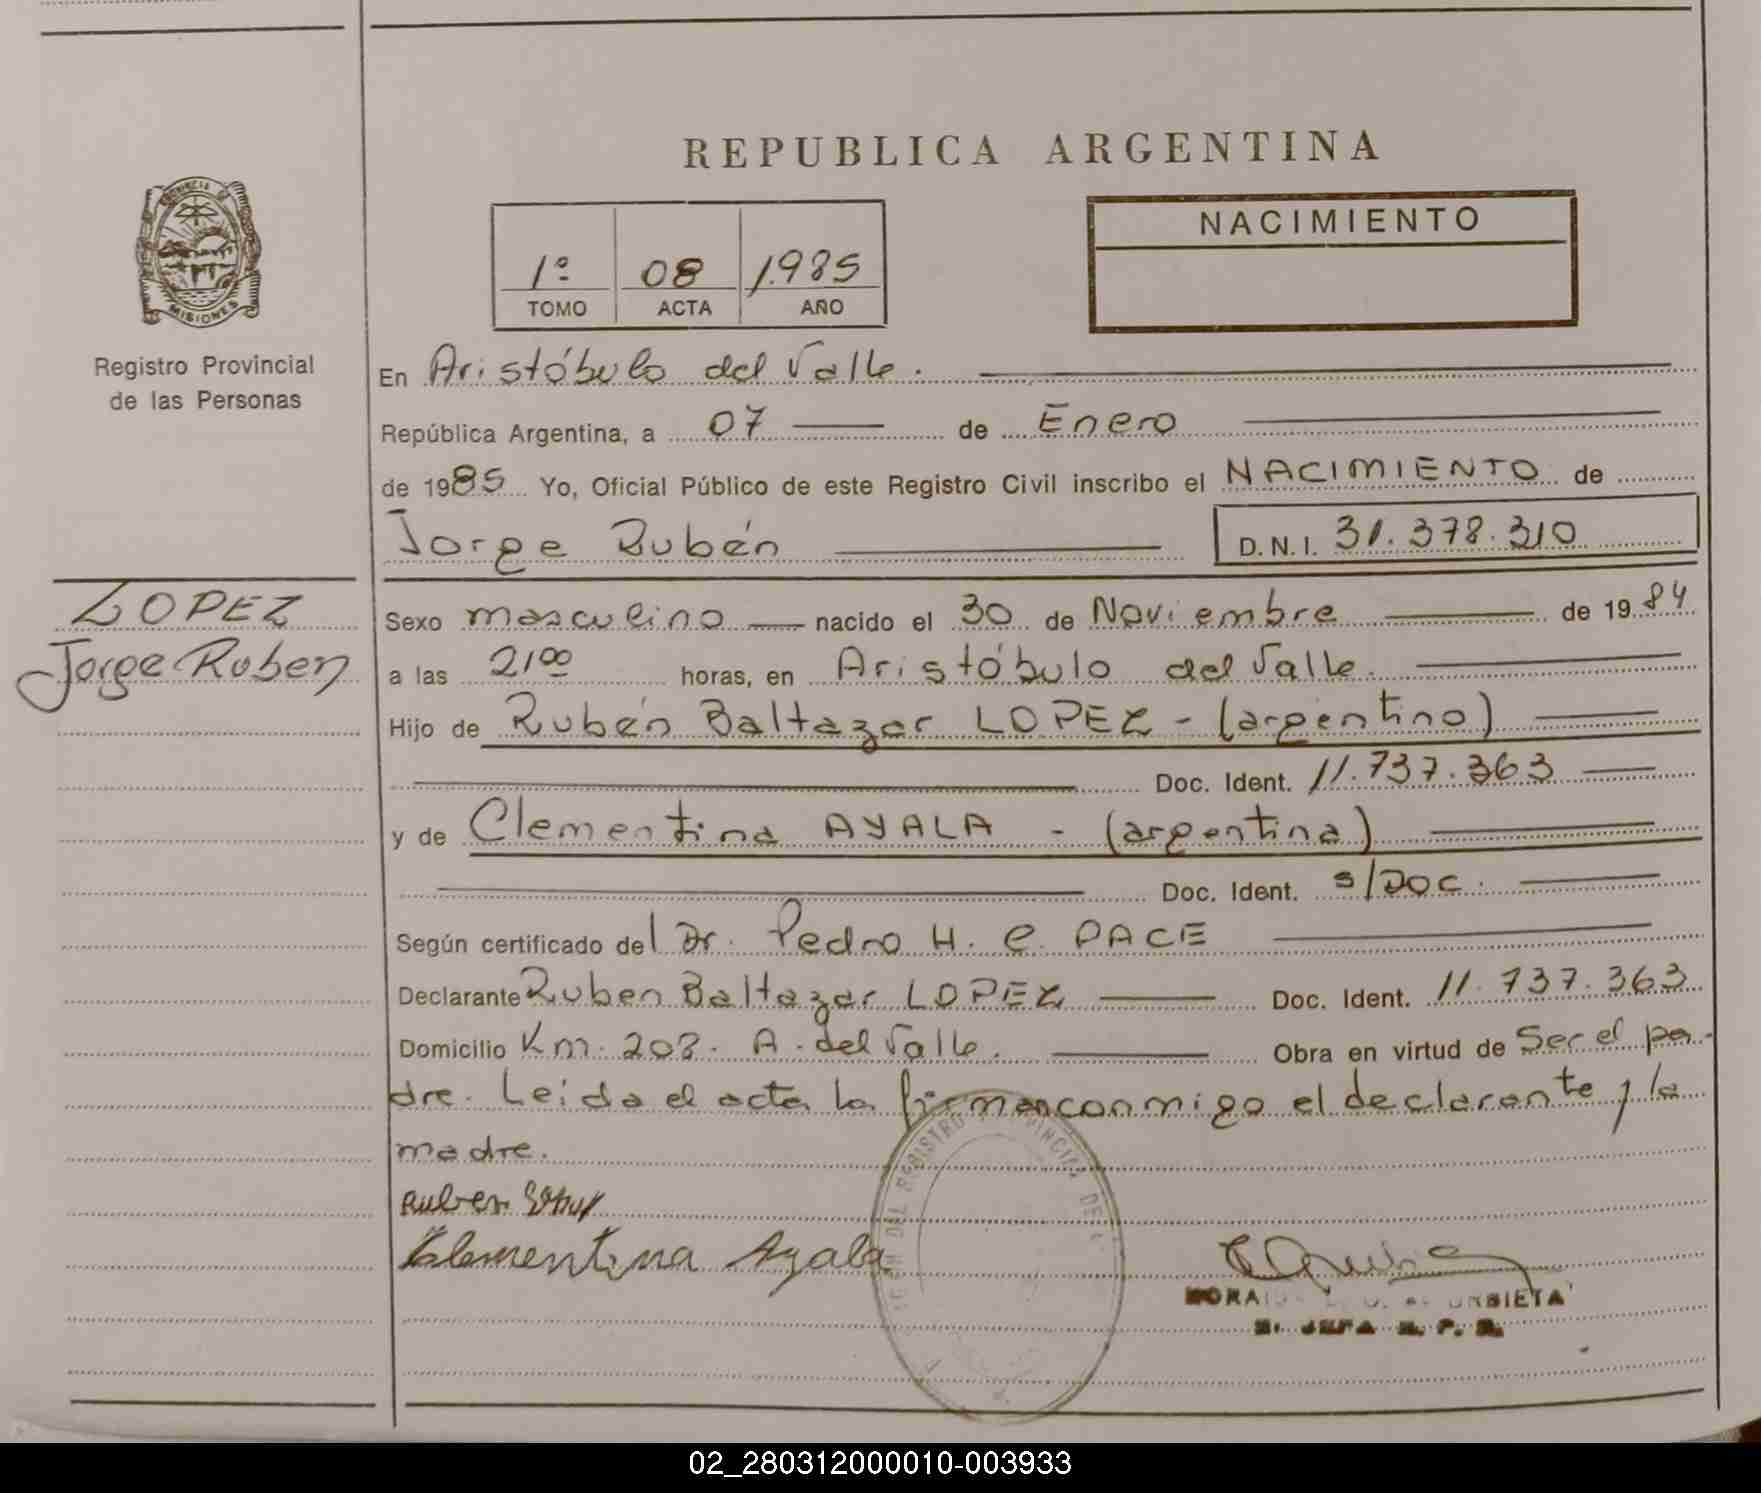 REPUBLICA ARGENTINA
PROVINCIA DE
MISIONES
Registro Provincial
de las Personas
1º 08 1.985
TOMO ACTA AÑO
NACIMIENTO
En Aristóbulo del Valle.
República Argentina, a 07 de Enero
de 1985 Yo, Oficial Público de este Registro Civil inscribo el NACIMIENTO de
Jorge Rubén D.N.I. 31.378.310
LOPEZ
Jorge Ruben
Sexo masculino nacido el 30 de Noviembre de 1984
a las 21 00 horas, en Aristóbulo del Valle.
Hijo de Rubén Baltazar LOPEZ - (argentino)
Doc. Ident. 11.737.363
y de Clementina AYALA - (argentina)
Doc. Ident. s/DOC.
Según certificado del Dr. Pedro H. C. PACE
Declarante Ruben Baltazar LOPEZ Doc. Ident. 11.737.363
Domicilio Km. 208. A. del Valle. Obra en virtud de Ser el pa-
dre. Leida el acta la firman conmigo el declarante y la
madre.
Ruben
Clementina Ayala
DEL REGISTRO PROVINCIAL DE
URBIETA
JEFA R. P. 
02_280312000010-003933